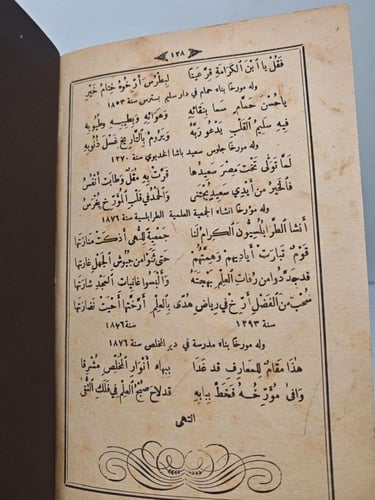 ١٣٨
فقل يا ابن الكرامة قر عيناً لبطرس أرخوه ختام خير
وله مورخاً بناء حمام في دار سليم بسترس سنة ١٨٥٣
يا حسن حمام سما بنقائه وهوائه وبطيبه وطيوبه
فيه سليم القلب يدعو ربه ويروم بالتاريخ غسل ذنوبه
وله مؤرخاً جلوس سعيد باشا الخديوي سنة ١٢٧٠
لما تولى تخت مصر سعيدها قرت به مقل وطابت أنفس
فالخير من أيدي سعيد يجتنى والحمد في قلب المؤرخ يغرس
وله مؤرخاً انشاء الجمعية العلمية الطرابلسية سنة ١٨٧٦
أنشا الطرابلسيون الكرام لنا جمعية للنهى أذكت منارتها
قوم تبارت أياديهم وهمتهم حتى توقوا من جيوش الجهل غارتها
قد جددوا من رفات العلم بهجته وألبسوا غانيات المجد شارتها
سحب من الفضل أرخ في رياض هدى بالعلم أرختها أحيت نضارتها
سنة ١٢٩٣ سنة ١٨٧٦
وله مؤرخاً بناء مدرسة في دير المخلص سنة ١٨٧٦
هذا مقام للمعارف قد غدا ببهاء أنوار المخلص مشرقا
وافى مؤرخه فخط ببابه قد لاح صبح العلم في فلك التقى
انتهى